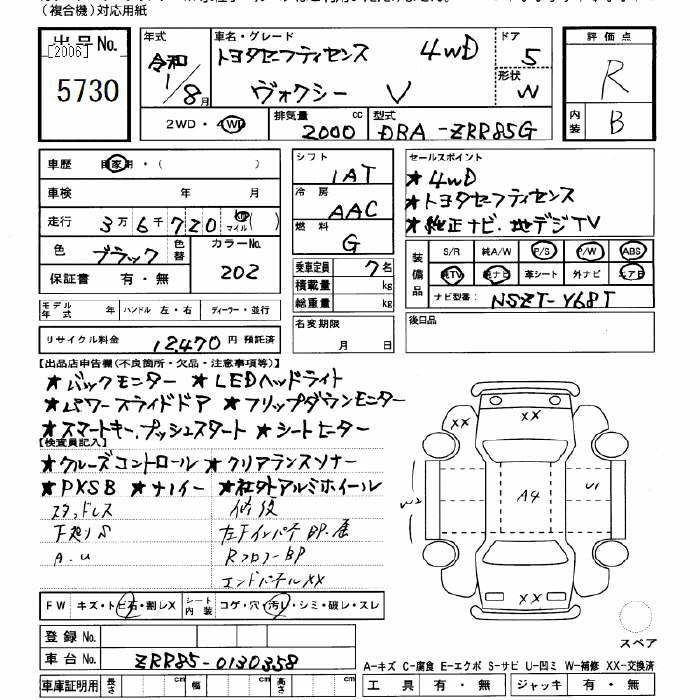 (複合機)対応用紙
出品No. [2006] 5730
年式 令和 1/8月
車名・グレード トヨタセーフティセンス 4WD
ヴォクシー V
ドア 5
形状 W
評価点 R
内装 B
2WD・4WD
排気量 2000 cc
型式 DBA-ZRR85G
車歴 自家用・( )
車検 年 月
走行 3万6千720 km マイル( )
色 ブラック 色替 カラーNo. 202
保証書 有・無
モデル年式 年 ハンドル 左・右 ディーラー・並行
リサイクル料金 12,470 円 預託済
シフト IAT
冷房 AAC
燃料 G
乗車定員 7名
積載量 kg
総重量 kg
名変期限 月 日
セールスポイント
★4WD
★トヨタセーフティセンス
★純正ナビ.地デジTV
装備品 S/R 純A/W P/S P/W ABS
純TV 純ナビ 革シート 外ナビ エアB
ナビ型番: NSZT-Y68T
後日品
【出品店申告欄(不良箇所・欠品・注意事項等)】
★バックモニター ★LEDヘッドライト
★パワースライドドア ★フリップダウンモニター
★スマートキー.プッシュスタート ★シートヒーター
【検査員記入】
★クルーズコントロール ★クリアランスソナー
★PKSB ★ナノイー ★社外アルミホイール
スタッドレス 修復
下廻りS
A.U
エンドパネルXX
FW キズ・トビ石・割レX 2
シート内装 コゲ・穴・汚レ・シミ・破レ・スレ
登録No.
車台No. ZRR85-0130358
車庫証明用 長さ cm 幅 cm 高さ cm
XX
W2
A4
U1
XX
スペア
A-キズ C-腐食 E-エクボ S-サビ U-凹ミ W-補修 XX-交換済
工具 有・無 ジャッキ 有・無